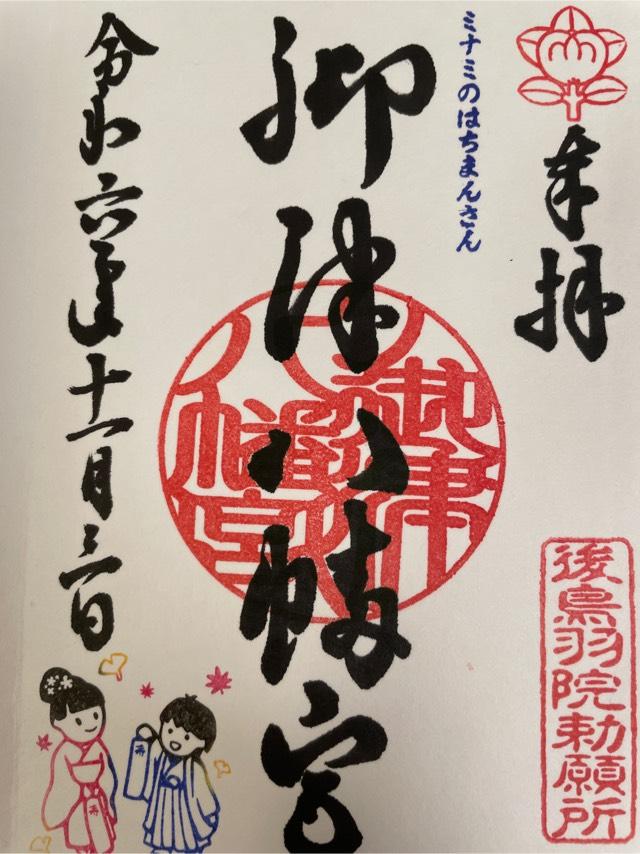 奉拝
後鳥羽院勅願所
ミナミのはちまんさん
御津八幡宮
御津八幡宮
令和六年十一月三日